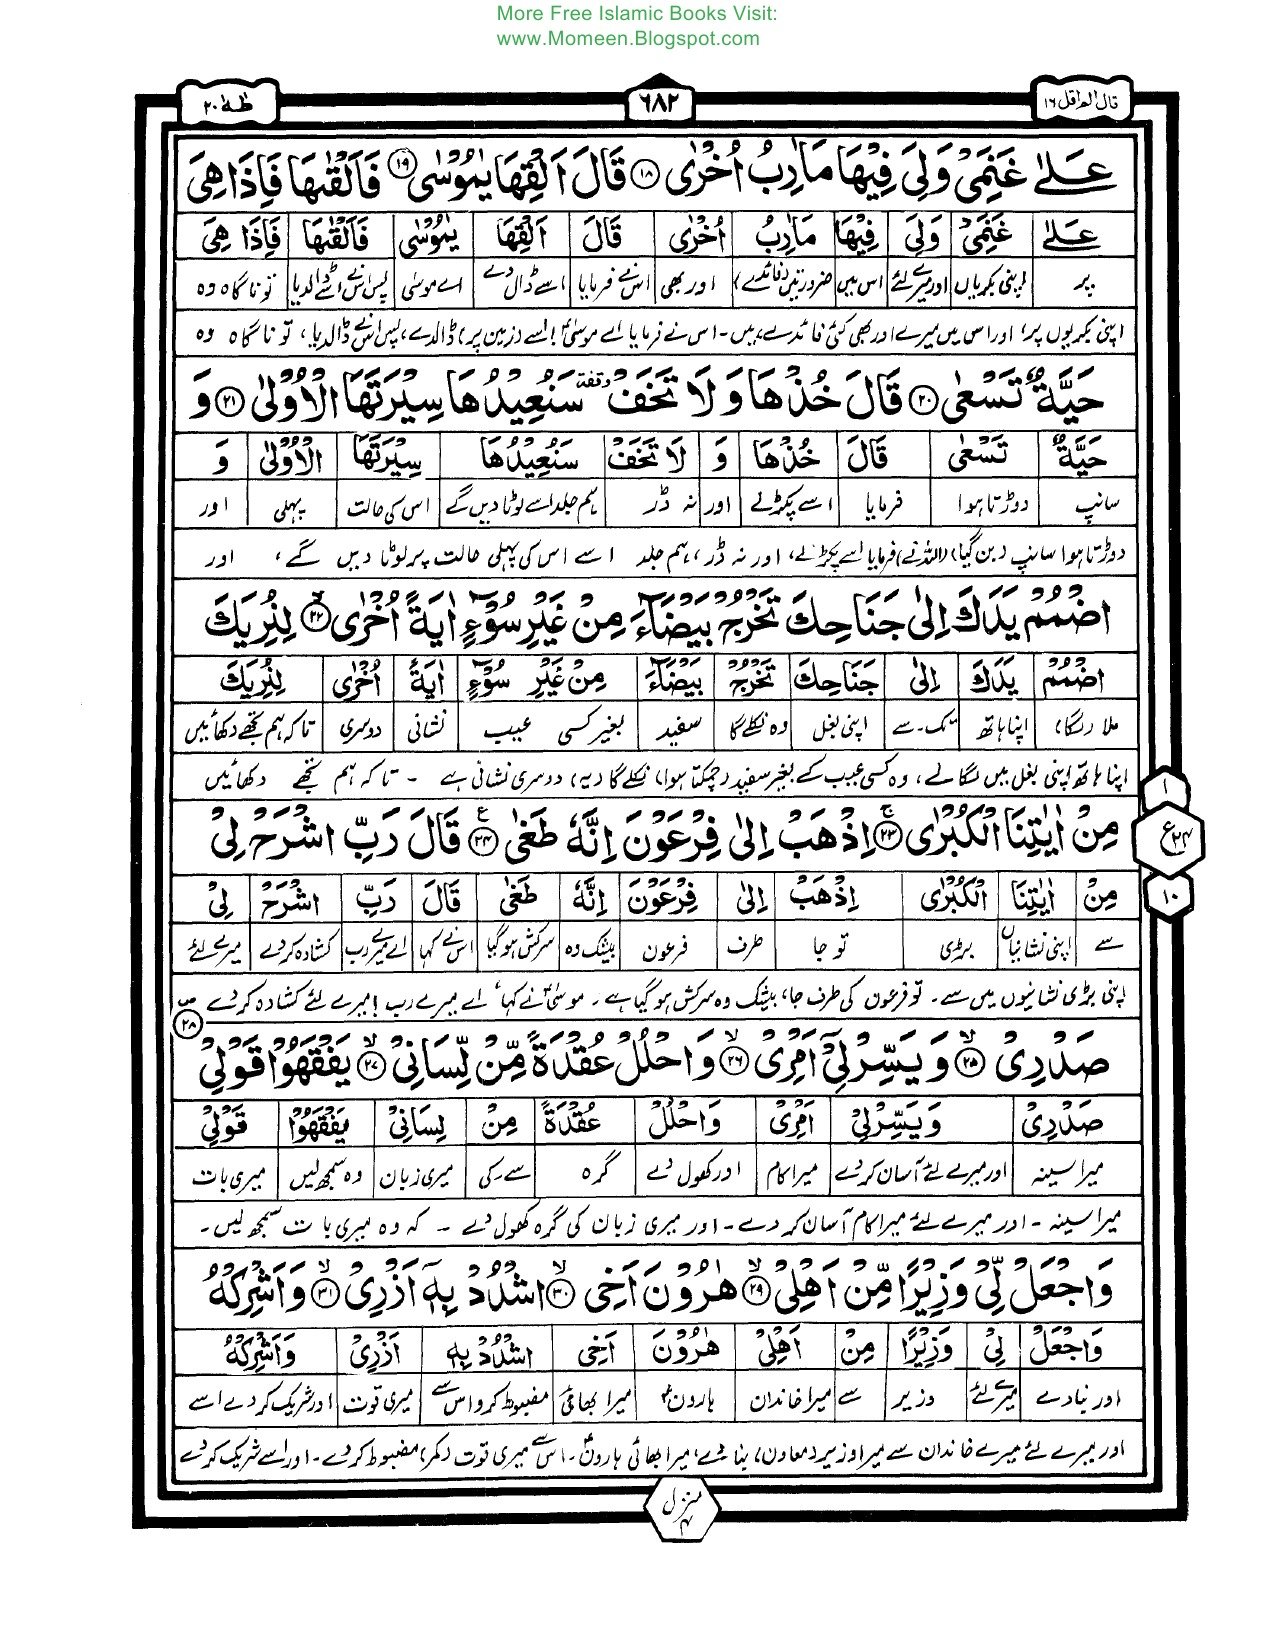 More Free Islamic Books Visit:
www.Momeen.Blogspot.com
قال الم اقل ۱۶
۶۸۲
طٰهٰ ۲۰
عَلٰى غَنَمِىْ وَلِىَ فِيْهَا مَاٰرِبُ اُخْرٰى ۱۸ قَالَ اَلْقِهَا يٰمُوْسٰى ۱۹ فَاَلْقٰىهَا فَاِذَا هِىَ
عَلٰى غَنَمِىْ وَلِىَ فِيْهَا مَاٰرِبُ اُخْرٰى قَالَ اَلْقِهَا يٰمُوْسٰى فَاَلْقٰىهَا فَاِذَا هِىَ
پر اپنی بکریاں اور میرے لئے اس میں ضرورتیں (فائدے) اور بھی اس نے فرمایا اسے ڈال دے اے موسٰی پس اس نے اسے ڈالدیا تو ناگاہ وہ
اپنی بکریوں پر، اور اس میں میرے اور بھی کئی فائدے ہیں۔ اس نے فرمایا اے موسیٰؑ! اسے (زمین پر) ڈالدے، پس اس نے ڈالدیا، تو ناگاہ وہ
حَيَّةٌ تَسْعٰى ۲۰ قَالَ خُذْهَا وَلَا تَخَفْ وقفة سَنُعِيْدُهَا سِيْرَتَهَا الْاُوْلٰى ۲۱ وَ
حَيَّةٌ تَسْعٰى قَالَ خُذْهَا وَ لَا تَخَفْ سَنُعِيْدُهَا سِيْرَتَهَا الْاُوْلٰى وَ
سانپ دوڑتا ہوا فرمایا اسے پکڑ لے اور نہ ڈر ہم جلد اسے لوٹا دیں گے اس کی حالت پہلی اور
دوڑتا ہوا سانپ (بن گیا) (اللہ نے) فرمایا اسے پکڑ لے، اور نہ ڈر، ہم جلد اسے اس کی پہلی حالت پر لوٹا دیں گے، اور
اضْمُمْ يَدَكَ اِلٰى جَنَاحِكَ تَخْرُجْ بَيْضَآءَ مِنْ غَيْرِ سُوْٓءٍ اٰيَةً اُخْرٰى ۲۲ لِنُرِيَكَ
اضْمُمْ يَدَكَ اِلٰى جَنَاحِكَ تَخْرُجْ بَيْضَآءَ مِنْ غَيْرِ سُوْٓءٍ اٰيَةً اُخْرٰى لِنُرِيَكَ
ملا (لگا) اپنا ہاتھ تک۔ سے اپنی بغل وہ نکلے گا سفید بغیر کسی عیب نشانی دوسری تاکہ ہم تجھے دکھائیں
اپنا ہاتھ اپنی بغل میں لگا لے، وہ کسی عیب کے بغیر سفید (چمکتا ہوا) نکلے گا (یہ) دوسری نشانی ہے۔ تاکہ ہم تجھے دکھائیں
مِنْ اٰيٰتِنَا الْكُبْرٰى ۲۳ اِذْهَبْ اِلٰى فِرْعَوْنَ اِنَّهٗ طَغٰى ۲۴ قَالَ رَبِّ اشْرَحْ لِىْ
۱ ع ۲۴ ۱۰
مِنْ اٰيٰتِنَا الْكُبْرٰى اِذْهَبْ اِلٰى فِرْعَوْنَ اِنَّهٗ طَغٰى قَالَ رَبِّ اشْرَحْ لِىْ
سے اپنی نشانیاں بڑی تو جا طرف فرعون بیشک وہ سرکش ہو گیا اس نے کہا اے میرے رب کشادہ کر دے میرے لئے
اپنی بڑی نشانیوں میں سے۔ تو فرعون کی طرف جا، بیشک وہ سرکش ہو گیا ہے۔ موسیٰؑ نے کہا، اے میرے رب! میرے لئے کشادہ کر دے
صَدْرِىْ ۲۵ وَيَسِّرْ لِىْٓ اَمْرِىْ ۲۶ وَاحْلُلْ عُقْدَةً مِّنْ لِّسَانِىْ ۲۷ يَفْقَهُوْا قَوْلِىْ ۲۸
صَدْرِىْ وَيَسِّرْ لِىْ اَمْرِىْ وَاحْلُلْ عُقْدَةً مِنْ لِسَانِىْ يَفْقَهُوْا قَوْلِىْ
میرا سینہ اور میرے لئے آسان کر دے میرا کام اور کھول دے گرہ سے۔ کی میری زبان وہ سمجھ لیں میری بات
میرا سینہ۔ اور میرے لئے میرا کام آسان کر دے۔ اور میری زبان کی گرہ کھول دے۔ کہ وہ میری بات سمجھ لیں۔
وَاجْعَلْ لِّىْ وَزِيْرًا مِّنْ اَهْلِىْ ۲۹ هٰرُوْنَ اَخِى ۳۰ اشْدُدْ بِهٖٓ اَزْرِىْ ۳۱ وَاَشْرِكْهُ
وَاجْعَلْ لِىْ وَزِيْرًا مِنْ اَهْلِىْ هٰرُوْنَ اَخِى اشْدُدْ بِهٖ اَزْرِىْ وَاَشْرِكْهُ
اور بنا دے میرے لئے وزیر سے میرا خاندان ہارونؑ میرا بھائی مضبوط کر اس سے میری قوت اور شریک کر دے اسے
اور میرے لئے میرے خاندان سے میرا وزیر (معاون) بنا دے، میرا بھائی ہارونؑ۔ اس سے میری قوت (کمر) مضبوط کر دے۔ اور اسے شریک کر دے
منزل ۴